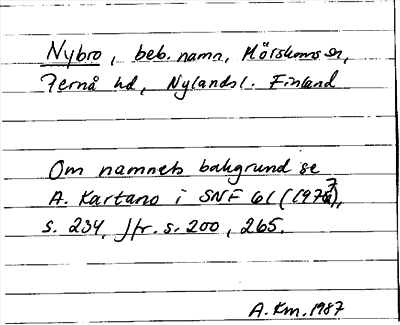 Nybro, beb. namn, Mörskoms sn,
Pernå hd, Nylands l. Finland
Om namnets bakgrund se
A. Kartano i SNF 61 (1977),
s. 234, Jfr. s. 200, 265.
A.Km.1987